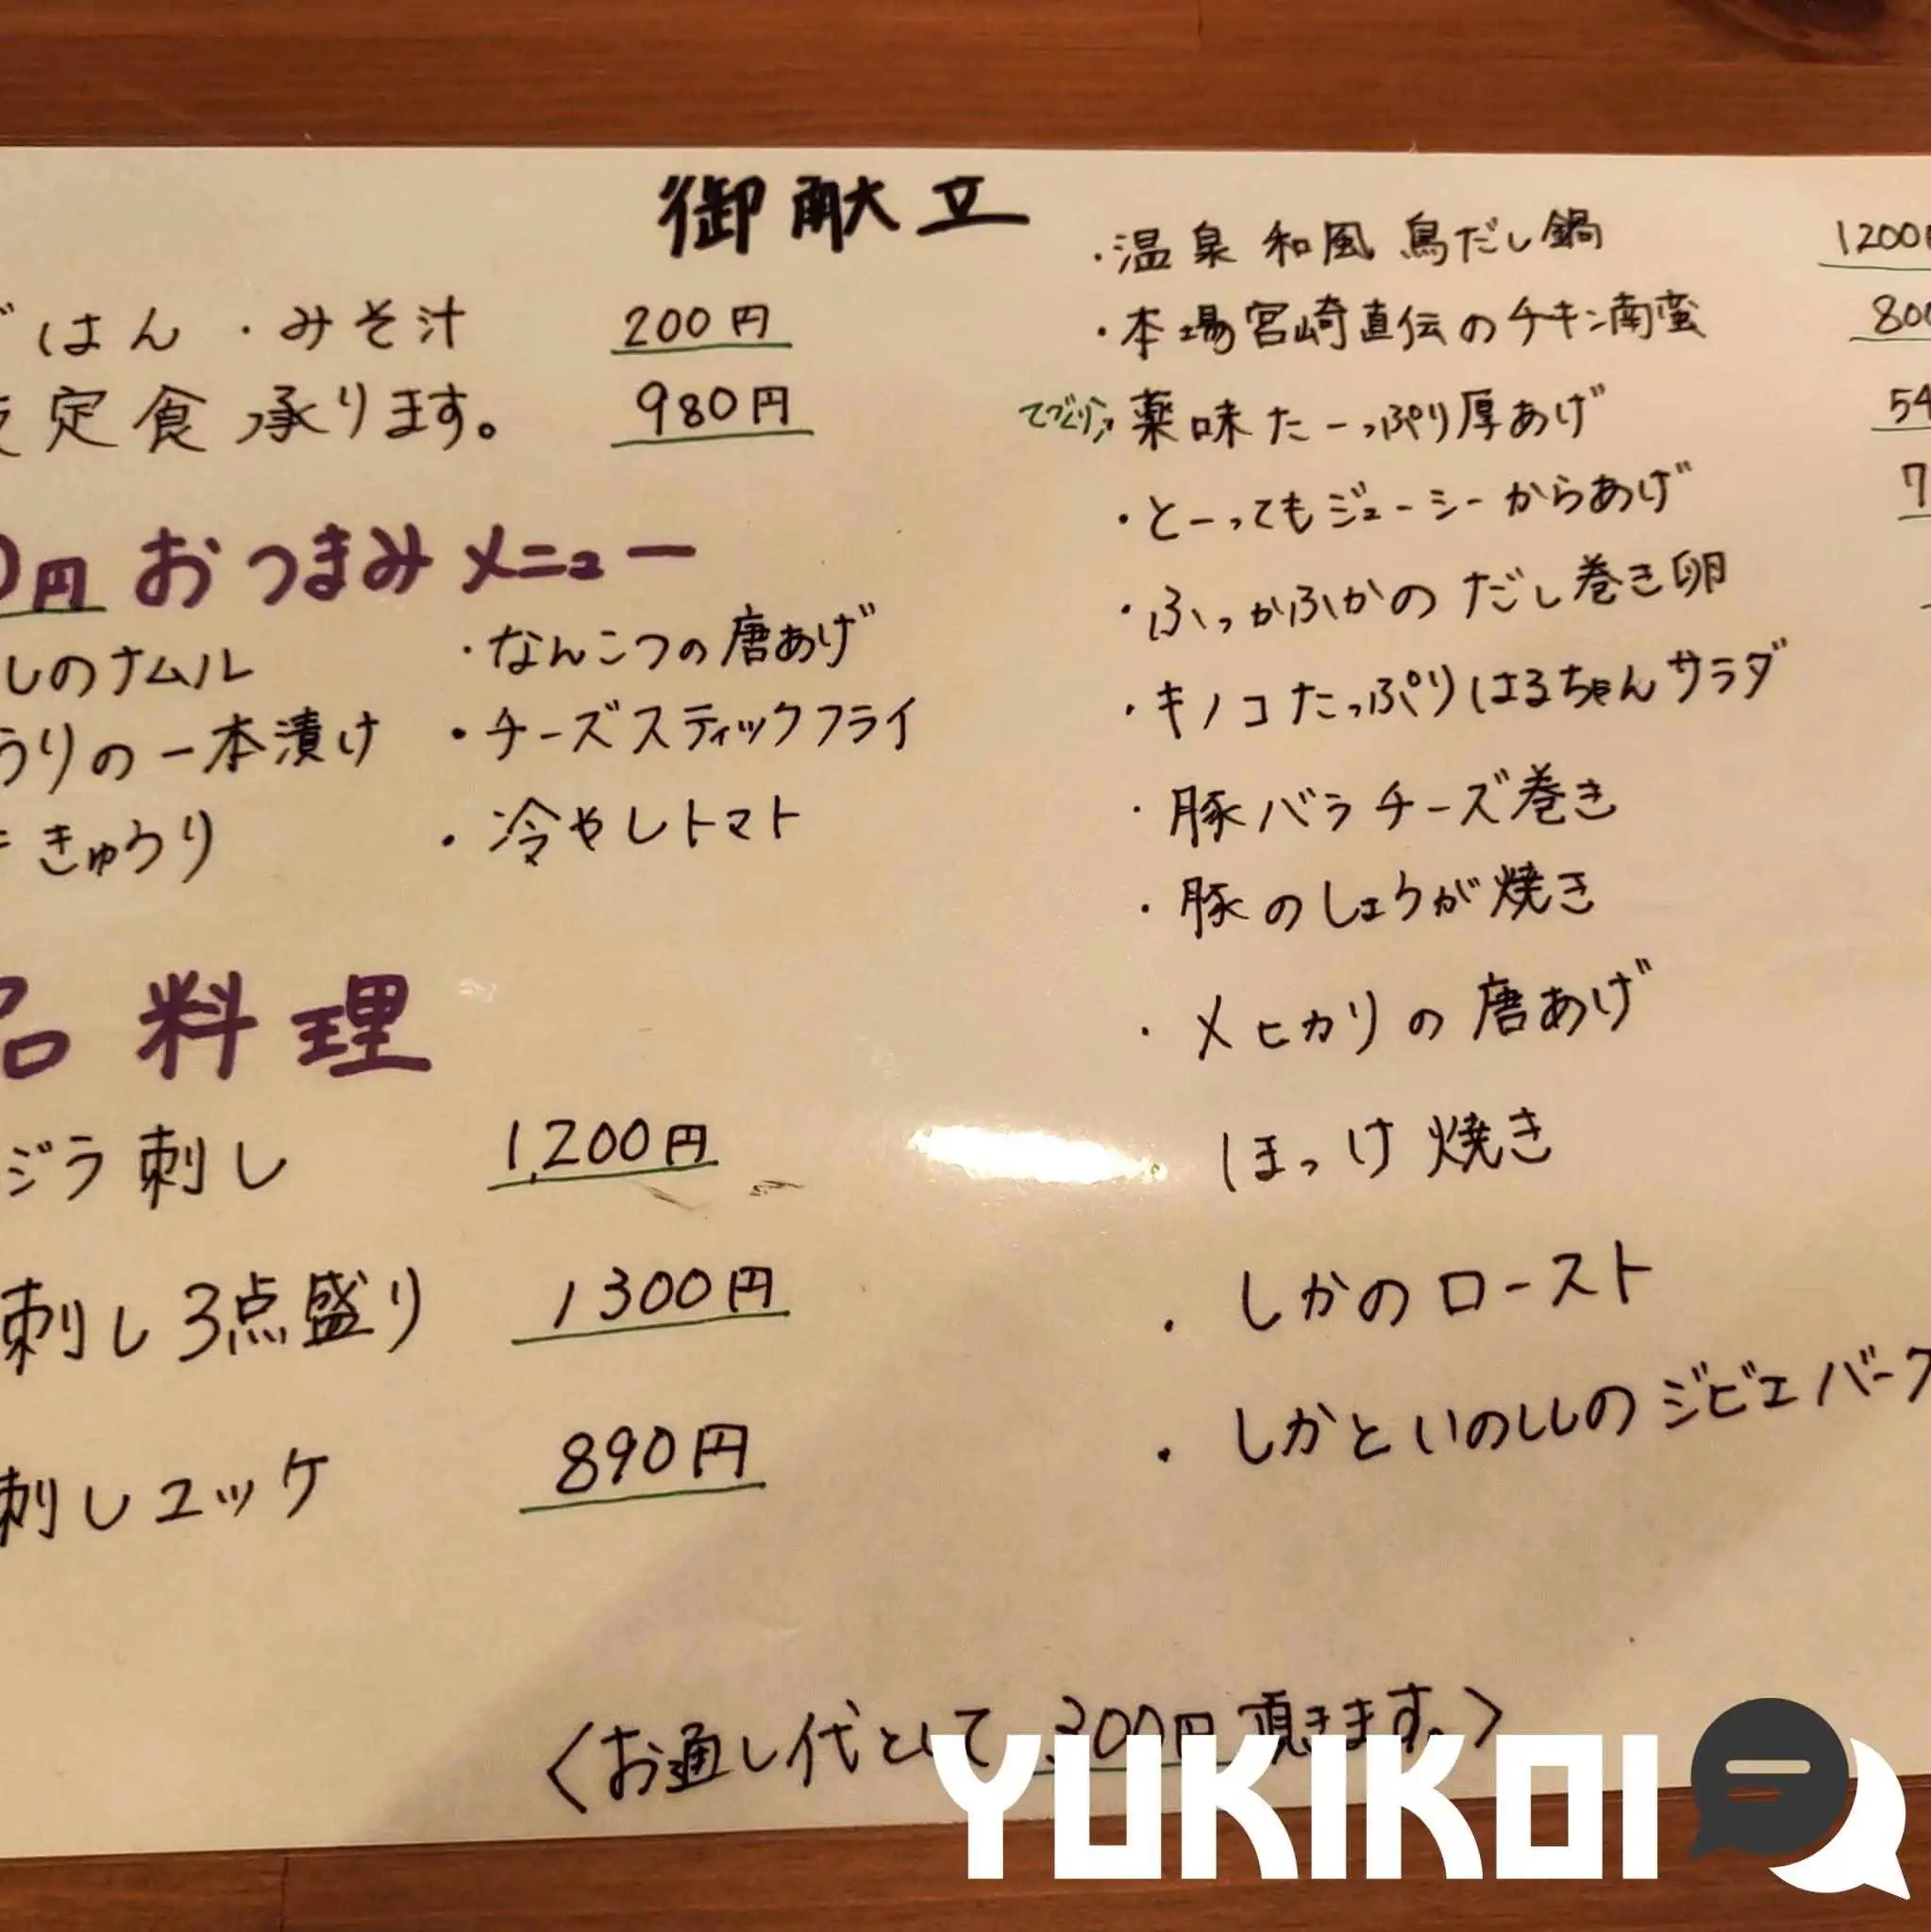 御献立
ごはん・みそ汁 200円
定食承ります。 980円
0円 おつまみメニュー
しのナムル
・なんこつの唐あげ
うりの一本漬け
・チーズスティックフライ
きゅうり
・冷やしトマト
品料理
ジラ刺し 1,200円
刺し3点盛り 1300円
刺しユッケ 890円
・温泉 和風 鳥だし鍋 1200
・本場宮崎直伝のチキン南蛮 800
てづくり 薬味たーっぷり厚あげ 54
・とーってもジューシーからあげ 7
・ふっかふかの だし巻き卵
・キノコたっぷりはるちゃんサラダ
・豚バラチーズ巻き
・豚のしょうが焼き
・メヒカリの唐あげ
ほっけ焼き
・しかのロースト
・しかといのししのジビエバーグ
〈お通し代として 300円 頂きます。〉
YUKIKOI